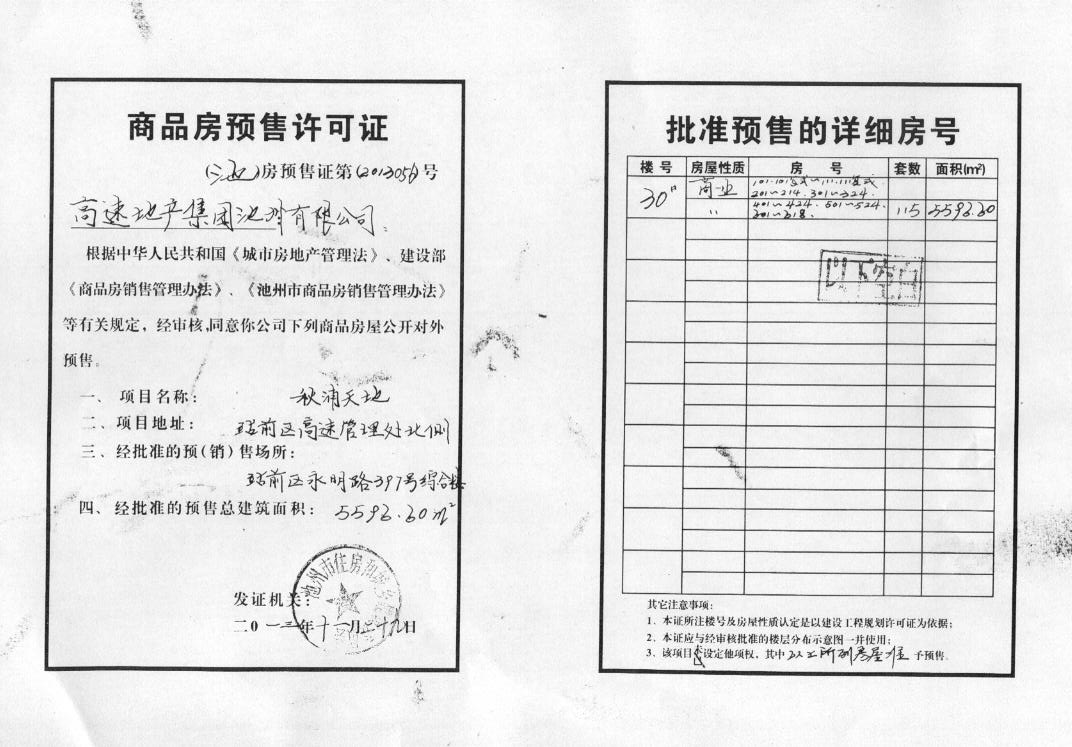 商品房预售许可证
(池)房预售证第(2013056)号
高速地产集团池州有限公司:
根据中华人民共和国《城市房地产管理法》、建设部
《商品房销售管理办法》、《池州市商品房销售管理办法》
等有关规定，经审核,同意你公司下列商品房屋公开对外
预售。
一、项目名称: 秋浦天地
二、项目地址: 站前区高速管理处北侧
三、经批准的预(销)售场所:
站前区永明路397号综合楼
四、经批准的预售总建筑面积: 5593.30m²
池州市住房和
发证机关:
二0一三年十一月二十九日
批准预售的详细房号
楼号 房屋性质 房号 套数 面积(m²)
30# 商业 101-101复式~111-111复式.
201~214. 301~324.
〃 401~424. 501~524. 115 5593.30
301~318.
以下空白
其它注意事项:
1、本证所注楼号及房屋性质认定是以建设工程规划许可证为依据;
2、本证应与经审核批准的楼层分布示意图一并使用;
3、该项目 设定他项权, 其中 以上所列房屋准 予预售。